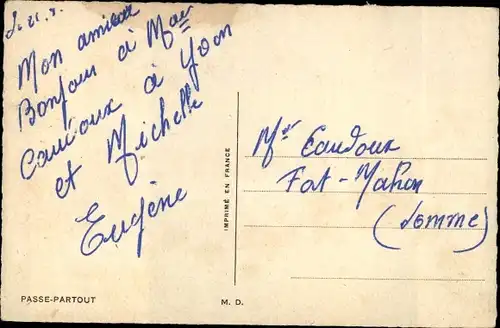 Mon amical
Bonjour à Mer
Caudoux à Yoon
et Michelle
Eugène
IMPRIMÉ EN FRANCE
Mer Caudoux
Fort-Mahon
(Somme)
PASSE-PARTOUT
M. D.